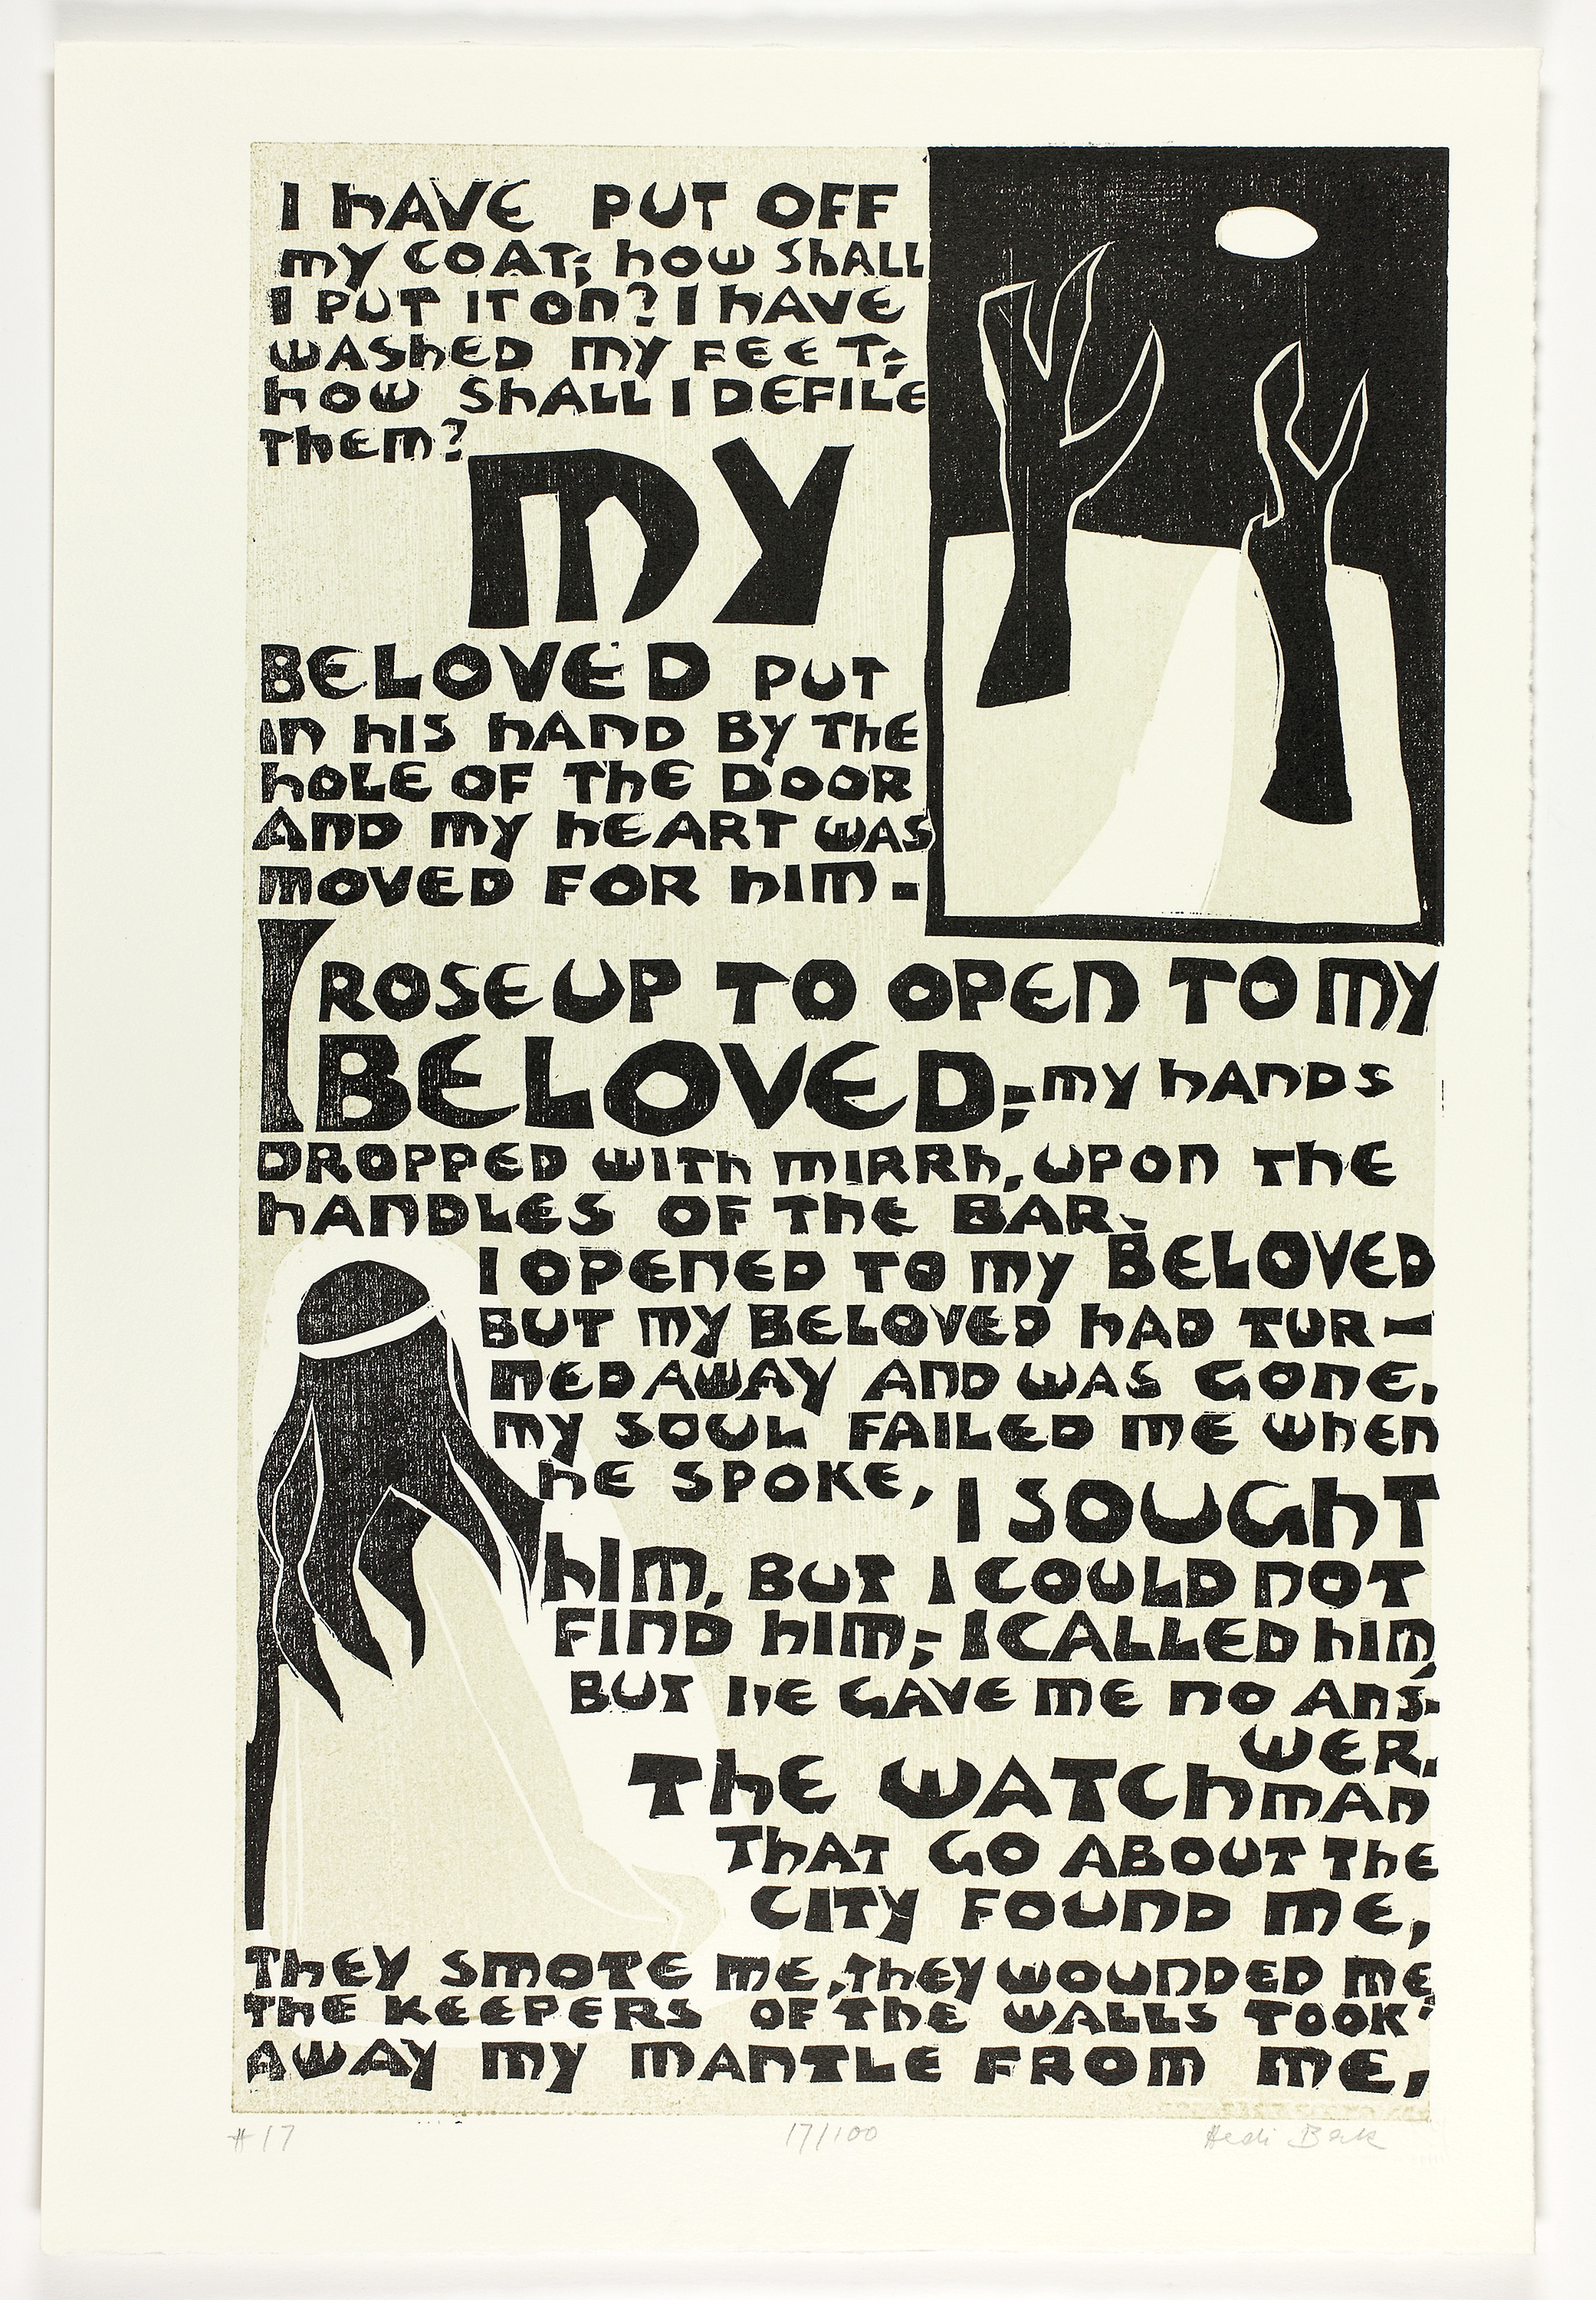 I hAVE PUT OFF
my COAT; how ShALL
I PUT IT ON? I hAVE
WAShED my FEET;
how ShALL I DEFILE
ThEm?
my
BELOVED PUT
IN hIS hAND By ThE
hOLE OF ThE DOOR
AND my hEART WAS
MOVED FOR hIM -
I ROSE UP TO OPEN TO MY
BELOVED; my hANDS
DROPPED WITh MIRRh, UPON ThE
hANDLES OF ThE BAR.
I OPENED TO my BELOVED
BUT my BELOVED hAD TUR-
NED AWAY AND WAS GONE.
my SOUL FAILED ME WhEN
hE SPOKE, I SOUGhT
hIM, BUT I COULD NOT
FIND hIM; I CALLED hIM,
BUT hE GAVE ME NO ANS-
WER.
ThE WATChMAN
ThAT GO ABOUT ThE
CITY FOUND ME,
ThEY SMOTE ME, ThEY WOUNDED ME,
ThE KEEPERS OF ThE WALLS TOOK
AWAY my MANTLE FROM ME,
#17 17/100 Hedi Bak